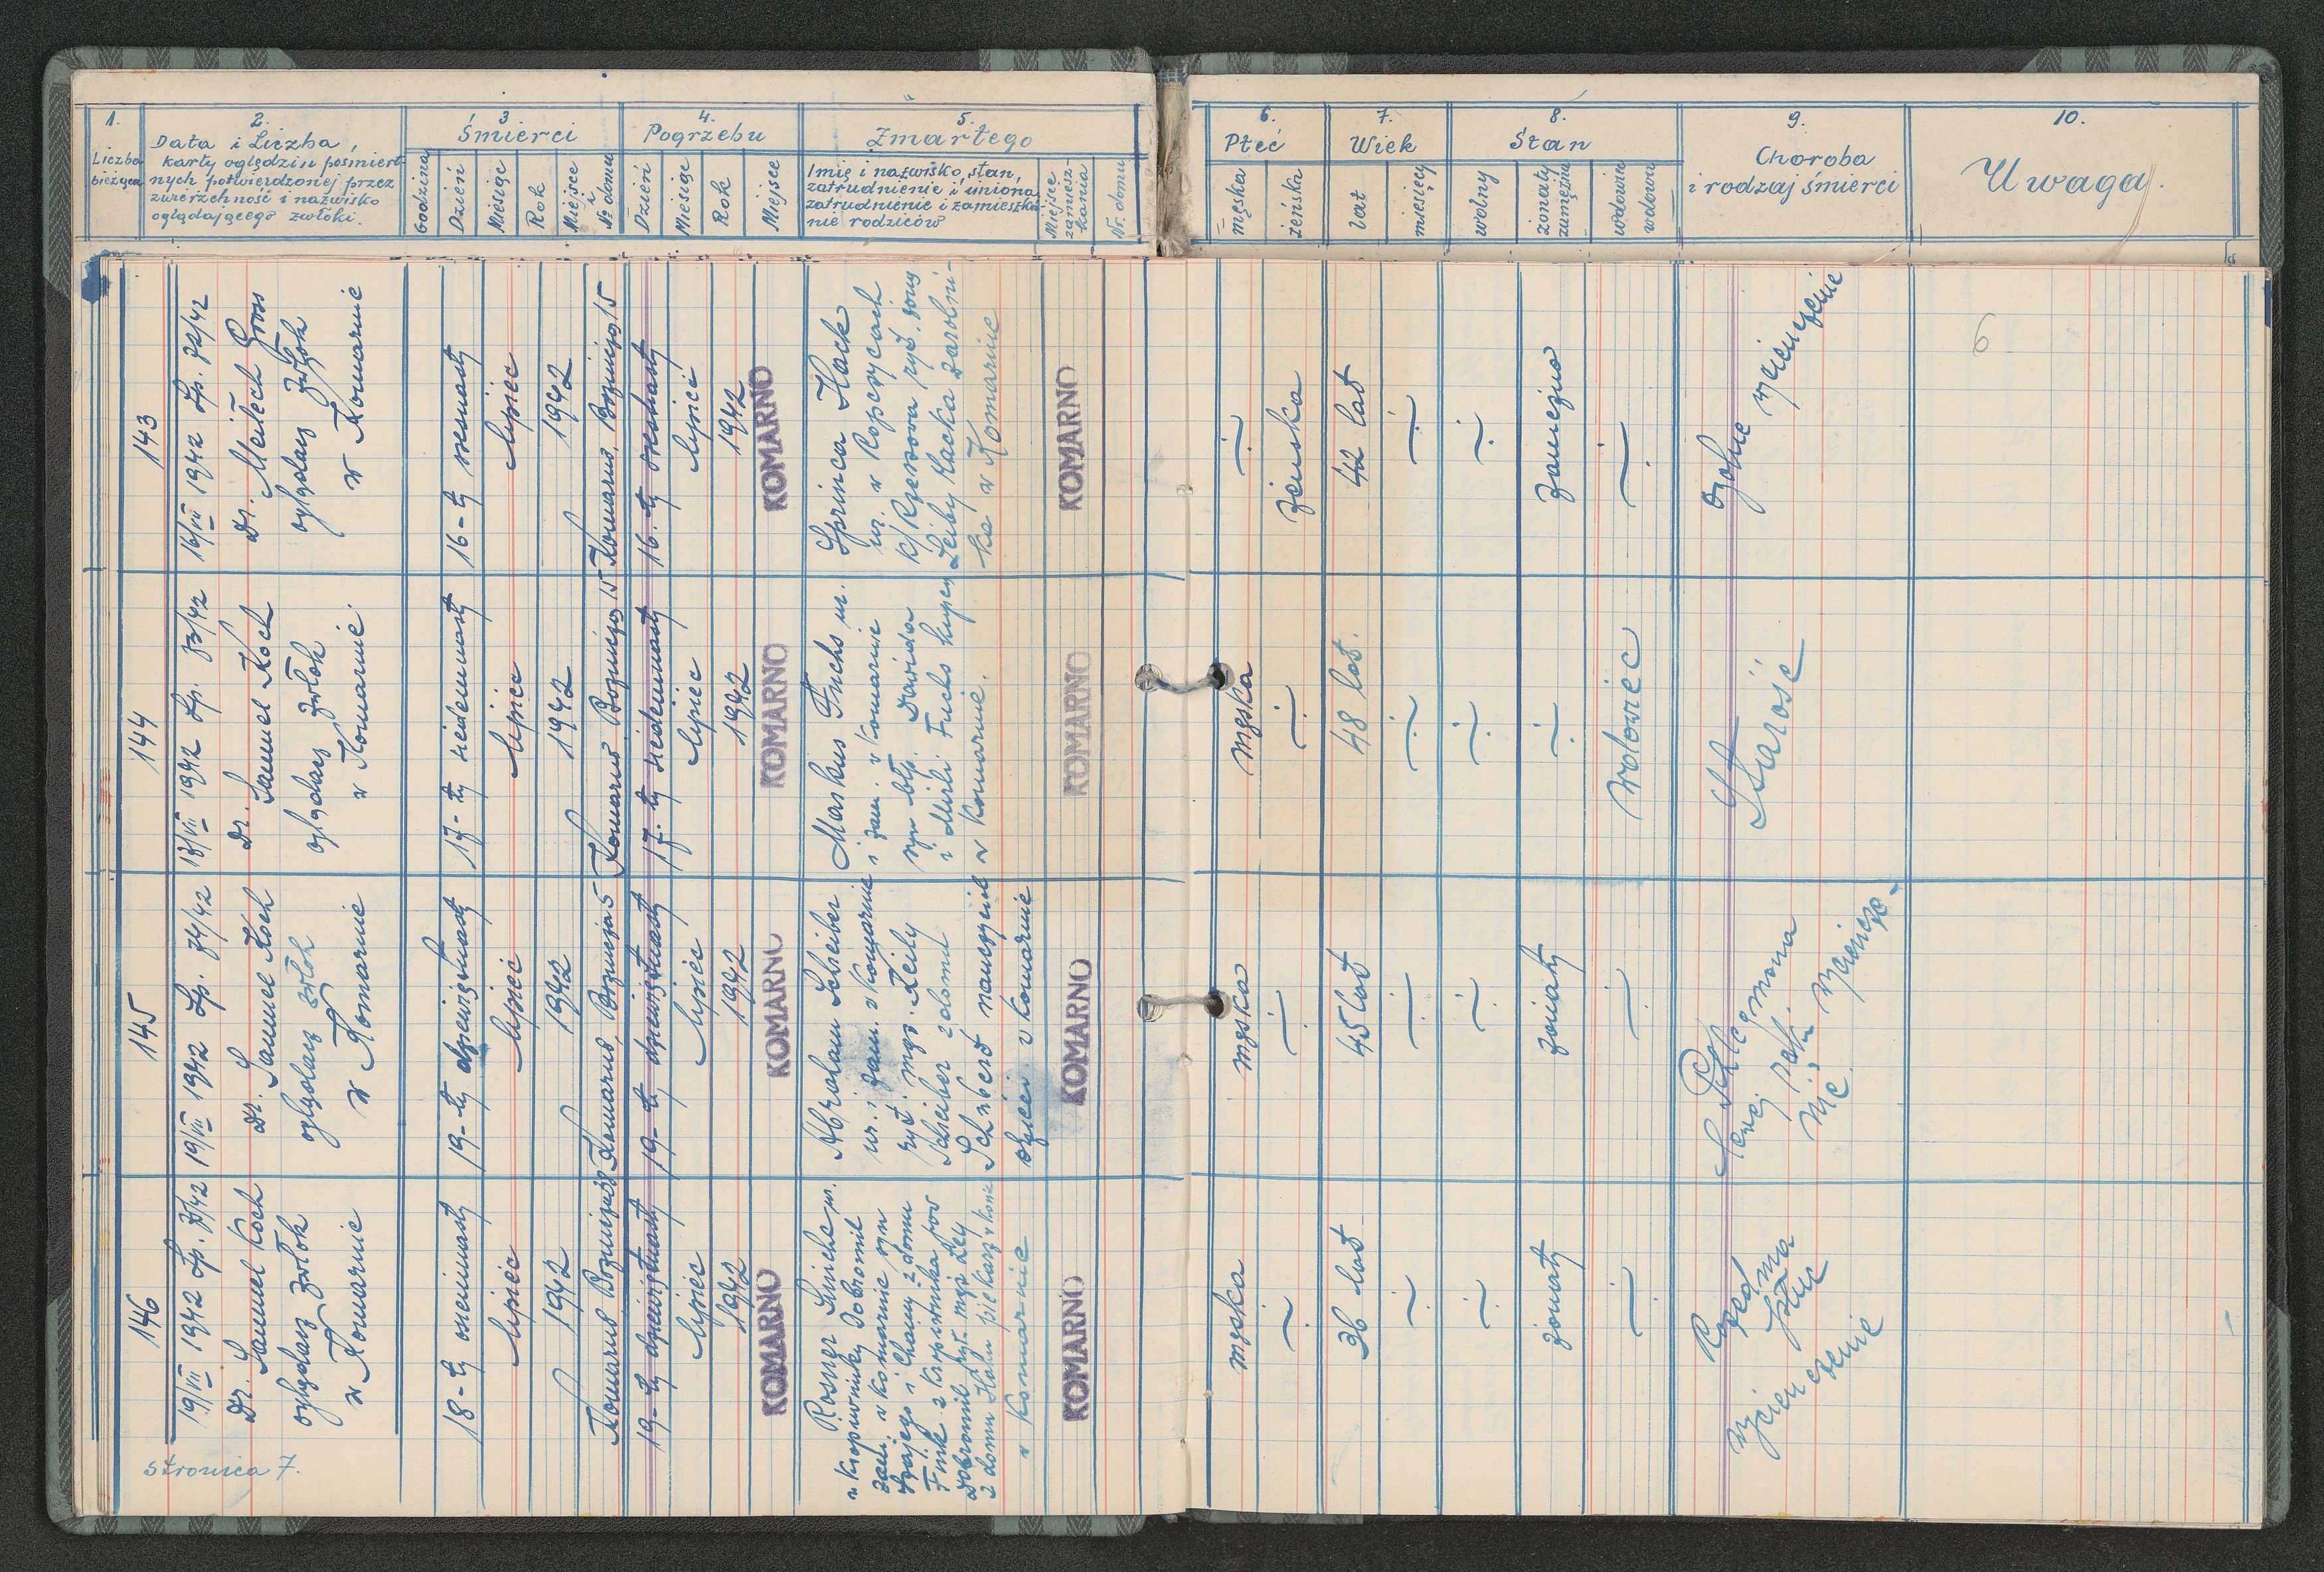 1.
Liczba
bieżąca
2.
Data i Liczba
karty oględzin pośmiert
nych potwierdzonej przez
zwierzchność i nazwisko
oglądającego zwłoki.
3
Śmierci
Godzina
Dzień
Miesiąc
Rok
Miejsce
i
№ domu
4.
Pogrzebu
Dzień
Miesiąc
Rok
Miejsce
5.
Zmartego
Imię i nazwisko, stan,
zatrudnienie i imiona,
zatrudnienie i zamieszka-
nie rodziców
Miejsce
zamiesz-
kania
Nr. domu
6.
Płeć
męska
żeńska
7.
Wiek
lat
miesięcy
8.
Stan
wolny
żonaty
zamężna
wdowiec
wdowa
9.
Choroba
i rodzaj śmierci
10.
Uwaga.
143
16/VII 1942 Lp. 72/42
Dr. Meilech Gross
oglądacz zwłok
w Komarnie
16-ty szesnasty
lipiec
1942
Komarno, Bożnicza 15
16-ty szesnasty
lipiec
1942
KOMARNO
Sprinca Hack
ur. w Ropczycach
k/Rzeszowa żyd. żony
Leiby Hacka zarobni-
ka w Komarnie
KOMARNO
żeńska
42 lat
zamężna
ogólne wycieńczenie
6
144
18/VII 1942 Lp. 73/42
Dr. Samuel Koch
oglądacz zwłok
w Komarnie
17-ty siedemnasty
lipiec
1942
Komarno Bożnicza 15
17-ty siedemnasty
lipiec
1942
KOMARNO
Markus Fuchs ur.
i zam. w Komarnie
syn błp. Dawida
i Mirli Fuchs kupcy
w Komarnie.
KOMARNO
męska
48 lat.
wdowiec
Starość
145
19/VII 1942 Lp. 74/42
Dr. Samuel Koch
oglądacz zwłok
w Komarnie
19-ty dziewiętnasty
lipiec
1942
Komarno, Bożnicza 5
19-ty dziewiętnasty
lipiec
1942
KOMARNO
Abraham Schreiber
ur. i zam. w Komarnie
żyd. mąż. Reily
Schreiber z domu
Schubert nauczyciel
dzieci w Komarnie
KOMARNO
męska
45 lat
żonaty
Phlegmona
lewej pachi wycieńcze-
nie
146
19/VII 1942 Lp. 75/42
Dr. Samuel Koch
oglądacz zwłok
w Komarnie
18-ty osiemnasty
lipiec
1942
Komarno Bożnicza
19-ty dziewiętnasty
lipiec
1942
KOMARNO
Rosner Simche ur.
w Koprowniky Dobromil
zam. w Komarnie syn
i Chainy z domu
Fink z
Dobromil żyd. mąż Ley
z domu Hahn piekarz w Kom.
w Komarnie
KOMARNO
męska
36 lat
żonaty
wycień
czenie
stronica 7.